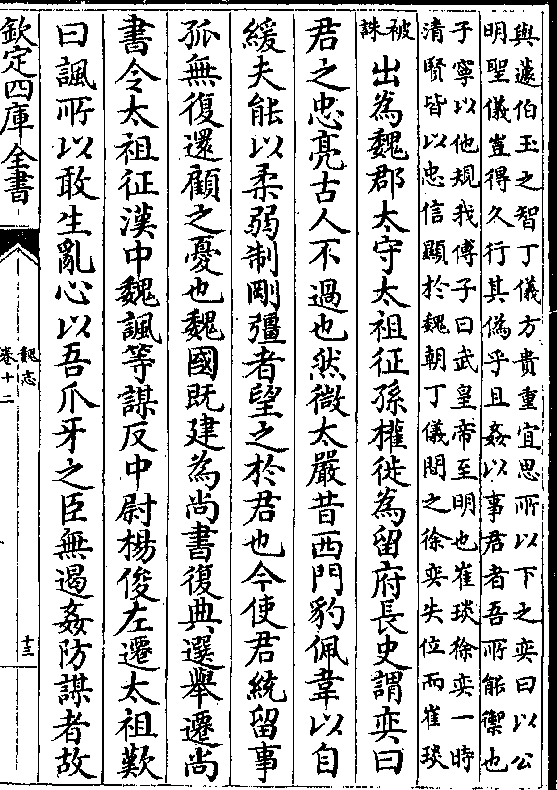 與蘧伯玉之智丁儀方貴重宜思所以下之奕曰以公
明聖儀豈得久行其偽乎且姦以事君者吾所能禦也
子寧以他規我傅子曰武皇帝至明也崔琰徐奕一時
清賢皆以忠信顯於魏朝丁儀間之徐奕失位而崔琰
被
誅
出為魏郡太守太祖征孫權徙為留府長史謂奕曰
君之忠亮古人不過也然微太嚴昔西門豹佩韋以自
緩夫能以柔弱制剛彊者望之於君也今使君統留事
孤無復還顧之憂也魏國既建為尚書復典選舉遷尚
書令太祖征漢中魏諷等謀反中尉楊俊左遷太祖歎
曰諷所以敢生亂心以吾爪牙之臣無遏姦防謀者故
欽定四庫全書
魏志
卷十二
十三